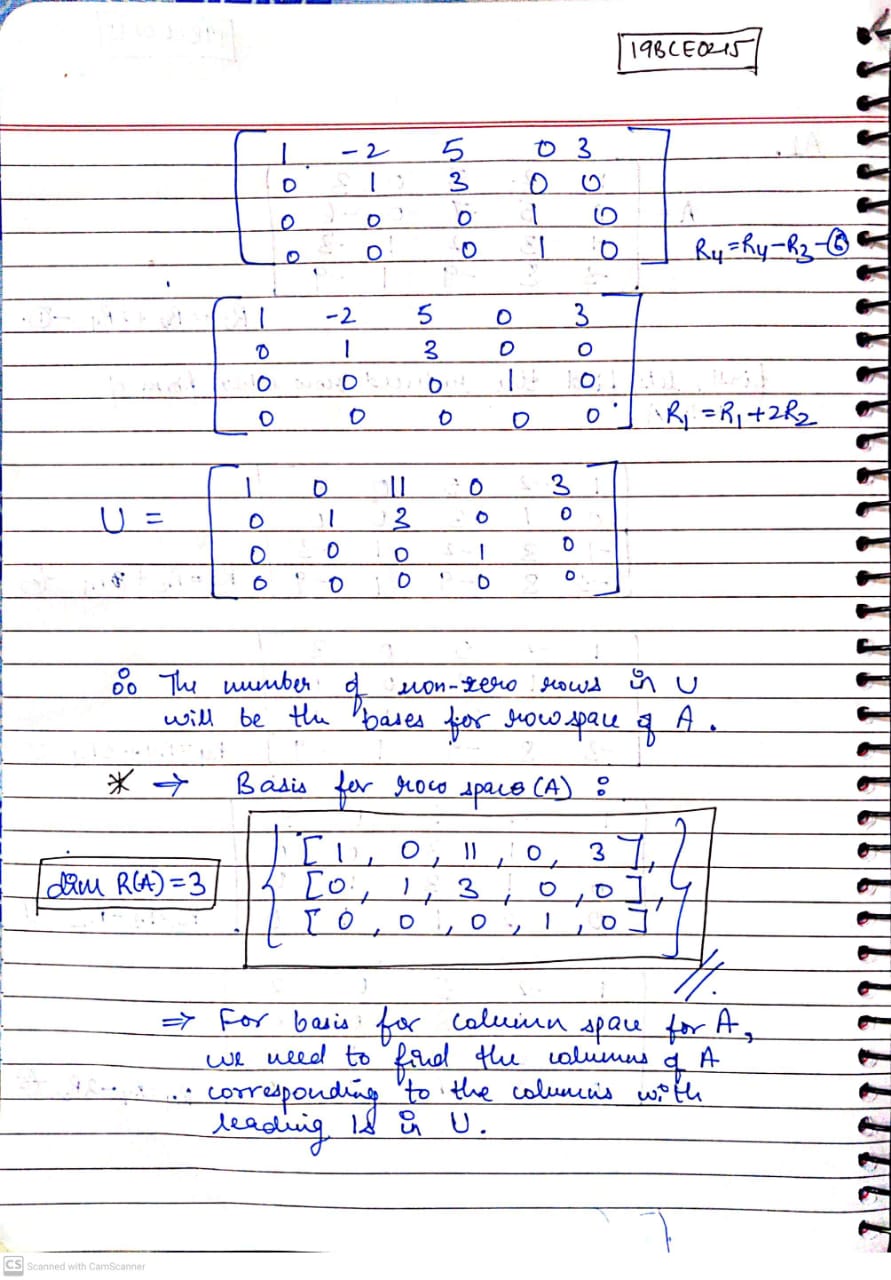 19BCE0215
1 -2 5 0 3
0 1 3 0 0
0 0 0 1 0
0 0 0 1 0 R4=R4-R3-⑥
1 -2 5 0 3
0 1 3 0 0
0 0 0 1 0
0 0 0 0 0 R1=R1+2R2
1 0 11 0 3
U = 0 1 3 0 0
0 0 0 1 0
0 0 0 0 0
The number of non-zero rows in U
will be the bases for row space of A.
* → Basis for row space (A) :
{ [1, 0, 11, 0, 3],
dim R(A)=3 [0, 1, 3, 0, 0],
[0, 0, 0, 1, 0] }
⇒ For basis for column space for A,
we need to find the columns of A
corresponding to the columns with
leading 1s in U.
CS Scanned with CamScanner